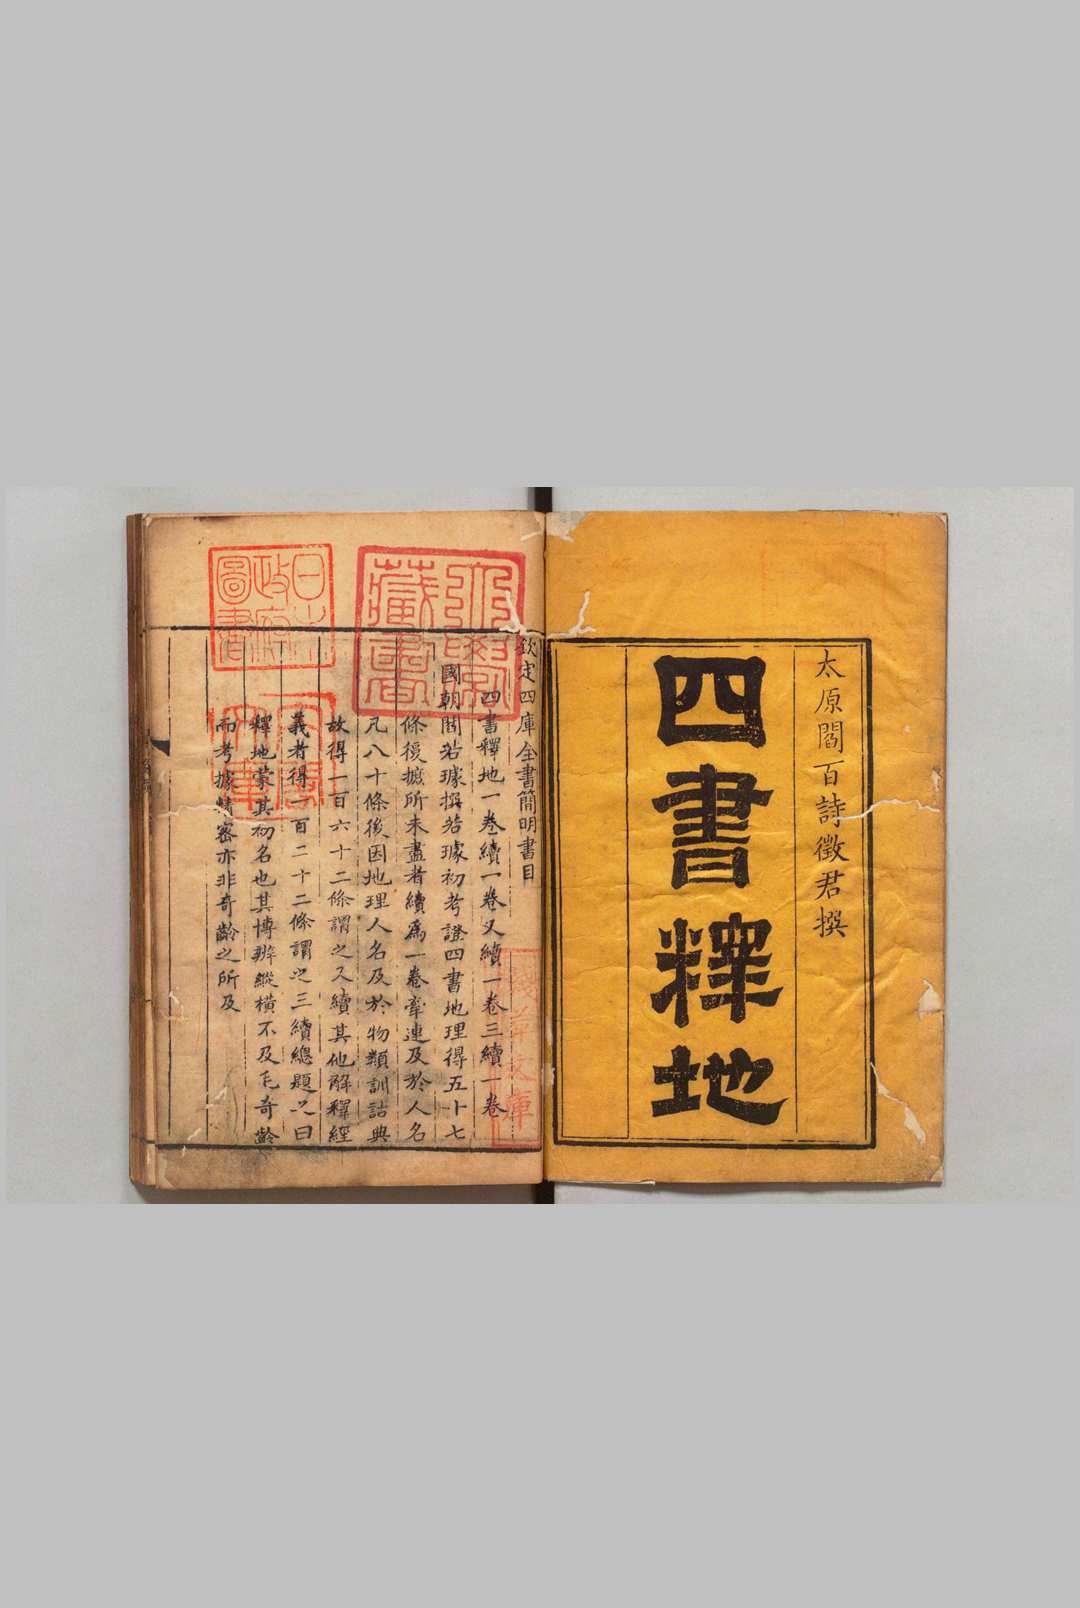 太原閻百詩徵君撰
四書釋地
欽定四庫全書簡明書目
四書釋地一卷續一卷又續一卷三續一卷
國朝閻若璩撰若璩初考證四書地理得五十七
條復摭所未盡者續爲一卷牽連及於人名
凡八十條後因地理人名及於物類訓詁典
故得一百六十二條謂之又續其他解釋經
義者得一百二十二條謂之三續總題以曰
釋地蒙其初名也其博辨縱橫不及毛奇齡
而考據精密亦非奇齡之所及
藏書
日本
政府
圖書
淺草文庫